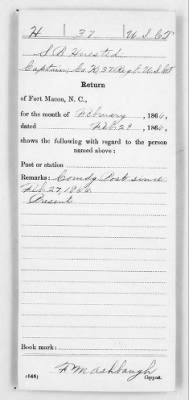 H 37 U S CT
S. B. Husted
Captain, Co. K, 37 Reg't. U.S. CT
Return
of Fort Macon, N. C.,
for the month of February, 1866,
dated Feb. 28, 1866,
shows the following with regard to the person
named above:
Post or station
Remarks: Comdg Post since
Feb. 27, 1866
Present
Book mark:
(648)
F M Ashbaugh
Copyist.